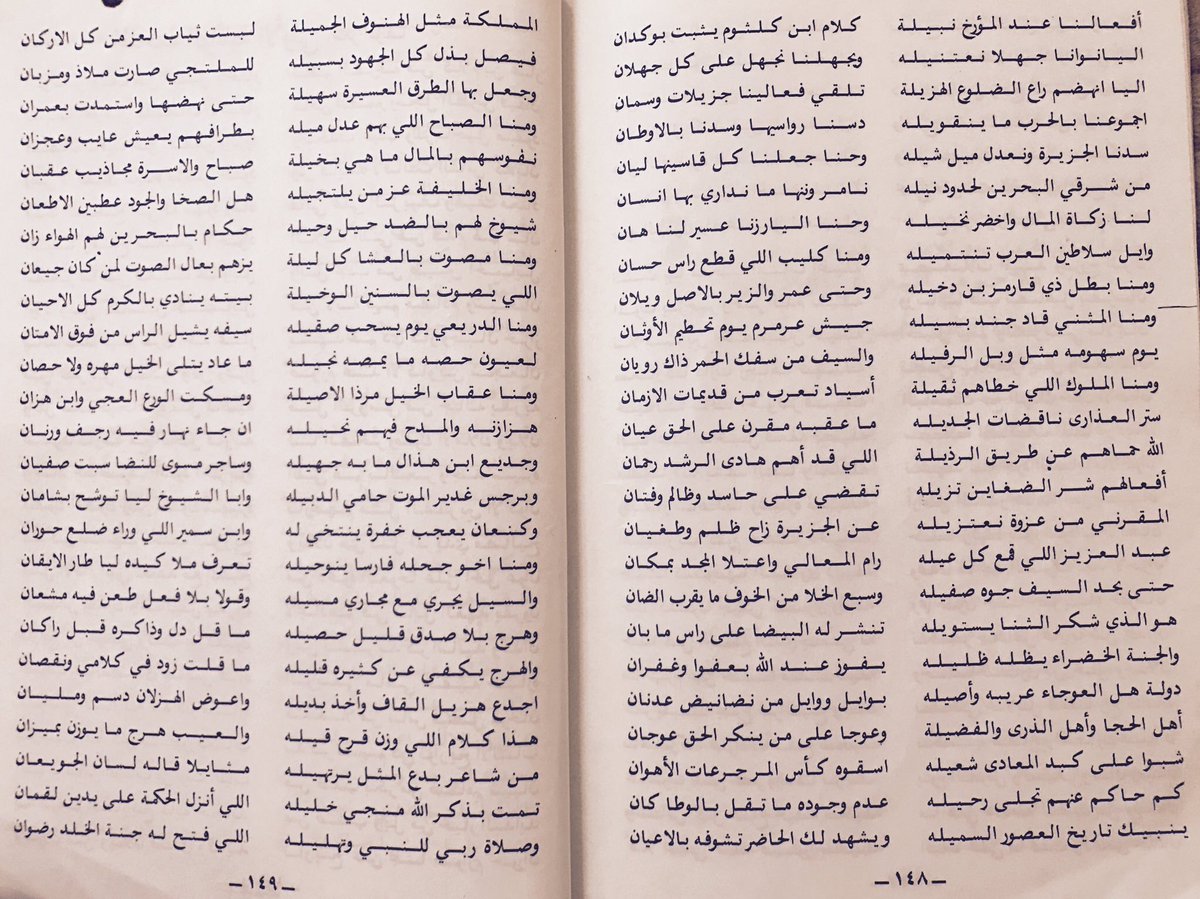 أفعالنا عند المؤرخ نبيلة كلام ابن كلثوم يثبت بوكدان
اليانوانا جهلا نعتنيله ويجهلنا نجهل على كل جهلان
اليا انهضم راع الضلوع الهزيلة تلقي فعالينا جزيلات وسمان
اجموعنا بالحرب ما ينقويله دسنا رواسيها وسدنا بالاوطان
سدنا الجزيرة ونعدل ميل شيله وحنا جعلنا كل قاسينها ليان
من شرقي البحرين لحدود نيله نامر وننها ما نداري بها انسان
لنا زكاة المال واخضر نخيله وحنا اليارزنا عسير لنا هان
وايل سلاطين العرب تنتميله ومنا كليب اللي قطع راس حسان
ومنا بطل ذي قارمز بن دخيله وحتى عمر والزير بالاصل ويلان
ومنا المثني قاد جند بسيله جيش عرمرم يوم تحطيم الأوثان
يوم سهومه مثل وبل الرفيله والسيف من سفك الحمر ذاك رويان
ومنا الملوك اللي خطاهم ثقيلة أسياد تعرب من قديمات الازمان
ستر العذارى ناقضات الجديله ما عقبه مقرن على الحق عيان
الله حماهم عن طريق الرذيلة اللي قد أهم هادى الرشد رحمان
أفعالهم شر الضغاين تزيله تقضي على حاسد وظالم وفتان
المقرني من عزوة نعتزيله عن الجزيرة زاح ظلم وطغيان
عبد العزيز اللي قمع كل عيله رام المعالي واعتلا المجد بمكان
حتى بحد السيف جوه صفيله وسبع الخلا من الخوف ما يقرب الضان
هو الذي شكر الثنا يستويله تنشر له البيضا على راس ما بان
والجنة الخضراء يظله ظليله يفوز عند الله بعفوا وغفران
دولة هل العوجاء عريبه وأصيله بوايل ووايل من نضانيض عدنان
أهل الحجا وأهل الذرى والفضيلة وعوجا على من ينكر الحق عوجان
شبوا على كبد المعادى شعيله اسقوه كأس المر جرعات الأهوان
كم حاكم عنهم تجلى رحيله عدم وجوده ما تقل بالوطا كان
ينبيك تاريخ العصور السميله ويشهد لك الحاضر تشوفه بالاعيان
ـ ١٤٨ ـ
المملكة مثل الهنوف الجميلة لبست ثياب العز من كل الاركان
فيصل بذل كل الجهود بسبيله للملتجي صارت ملاذ ومزبان
وجعل بها الطرق العسيرة سهيلة حتى نهضها واستمدت بعمران
ومنا الصباح اللي بهم عدل ميله بطرافهم يعيش عايب وعجزان
نفوسهم بالمال ما هي بخيلة صباح والاسرة مجاذيب عقبان
ومنا الخليفة عز من يلتجيله هل الصخا والجود عطبين الاطعان
شيوخ لهم بالضد حيل وحيله حكام بالبحرين لهم الهواء زان
ومنا مصوت بالعشا كل ليلة يزهم بعال الصوت لمن كان جيعان
اللي يصوت بالسنين الوخيلة بيته ينادي بالكرم كل الاحيان
ومنا الدريعي يوم يسحب صقيله سيفه يشيل الراس من فوق الامتان
لعيون حصه ما يمصه نجيله ما عاد يتلى الخيل مهره ولا حصان
ومنا عقاب الخيل مرذا الاصيلة ومسكت الورع العجي وابن هزان
هزازنه والمدح فيهم نحيله ان جاء نهار فيه رجف ورنان
وجديع ابن هذال ما به جهيله وساجر مسوى للنضا سبت صفيان
وبرجس غدير الموت حامي الدبيله وابا الشيوخ ليا توشح بشامان
وكنعان يعجب خفرة ينتخي له وابن سمير اللي وراء ضلع حوران
ومنا اخو جحله فارسا ينوحيله تعرف ملا كيده ليا طار الايقان
والسيل يجري مع مجاري مسيله وقولا بلا فعل طعن فيه مشعان
وهرج بلا صدق قليل حصيله ما قل دل وذاكره قبل راكان
والهرج يكفي عن كثيره قليله ما قلت زود في كلامي ونقصان
اجدع هزيل القاف وأخذ بديله واعوض الهزلان دسم ومليان
هذا كلام اللي وزن قرح قيله والعيب هرج ما يوزن بميزان
من شاعر بدع المثل يرتهيله مثايلا قاله لسان الجويعان
تمت بذكر الله منجي خليله اللي أنزل الحكمة على يدين لقمان
وصلاة ربي للنبي وتهليله اللي فتح له جنة الخلد رضوان
ـ ١٤٩ ـ